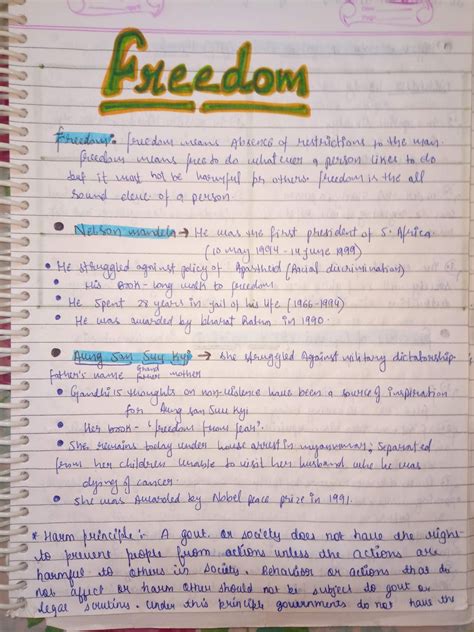 Freedom
Freedom:- freedom means absence of restrictions to the man.
freedom means free to do whatever a person likes to do
but it must not be harmful for others. freedom is the all
round of a person.
Nelson mandela → He was the first president of S. Africa.
(10 may 1994 - 14 June 1999)
He struggled against policy of Apartheid (Racial discrimination)
His Book - long walk to freedom.
He spent 28 years in jail of his life (1966-1994)
He was awarded by bharat Ratna in 1990.
Aung San Suu Kyi → She struggled against military dictatorship
father's name Grand father mother
Gandhi's thoughts on non-violence have been a source of inspiration
for Aung san suu kyi
Her book - 'freedom from fear'.
She remains today under house arrest in myanmar; separated
from her children unable to visit her husband whe he was
dying of cancer.
She was awarded by Nobel peace prize in 1991.
* Harm principle :- A govt. or society does not have the right
to prevene people from actions unless the actions are
harmful to others in society. Behavior or actions that do
not affect or harm other should not be subject to govt or
legal scrutiny. Under this principle governments do not have the